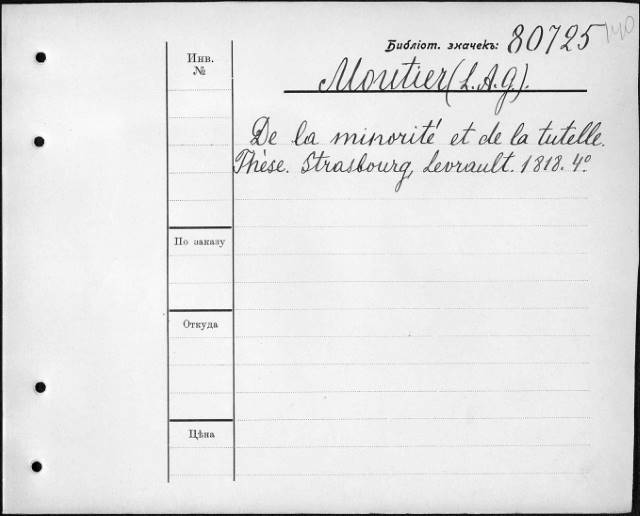 Библіот. значекъ: 80725
140
Инв.
№
Moutier (L. A. G.).
De la minorité et de la tutelle.
Thèse. Strasbourg, Levrault. 1818. 4º
По заказу
Откуда
Цѣна